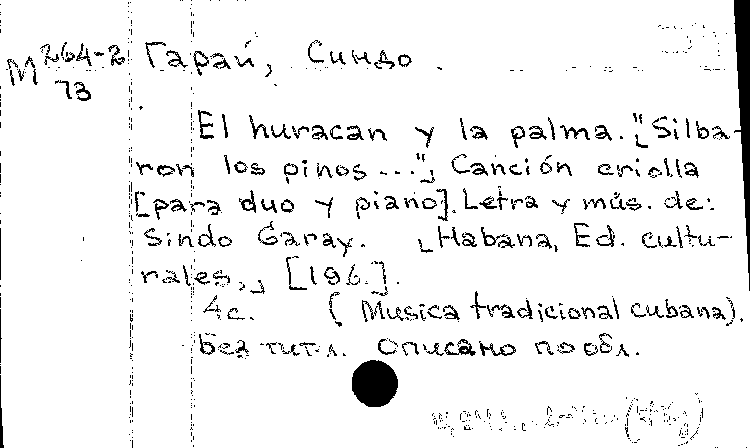 М 264-2 Гарай, Синдо.
73
El huracan y la palma. "Silba-
ron los pinos ..." Canción criolla
[para duo y piano]. Letra y mús. de:
Sindo Garay. Habana, Ed. cultu-
rales, [196.].
4с. (Musica tradicional cubana).
Без тит.л. Описано по обл.